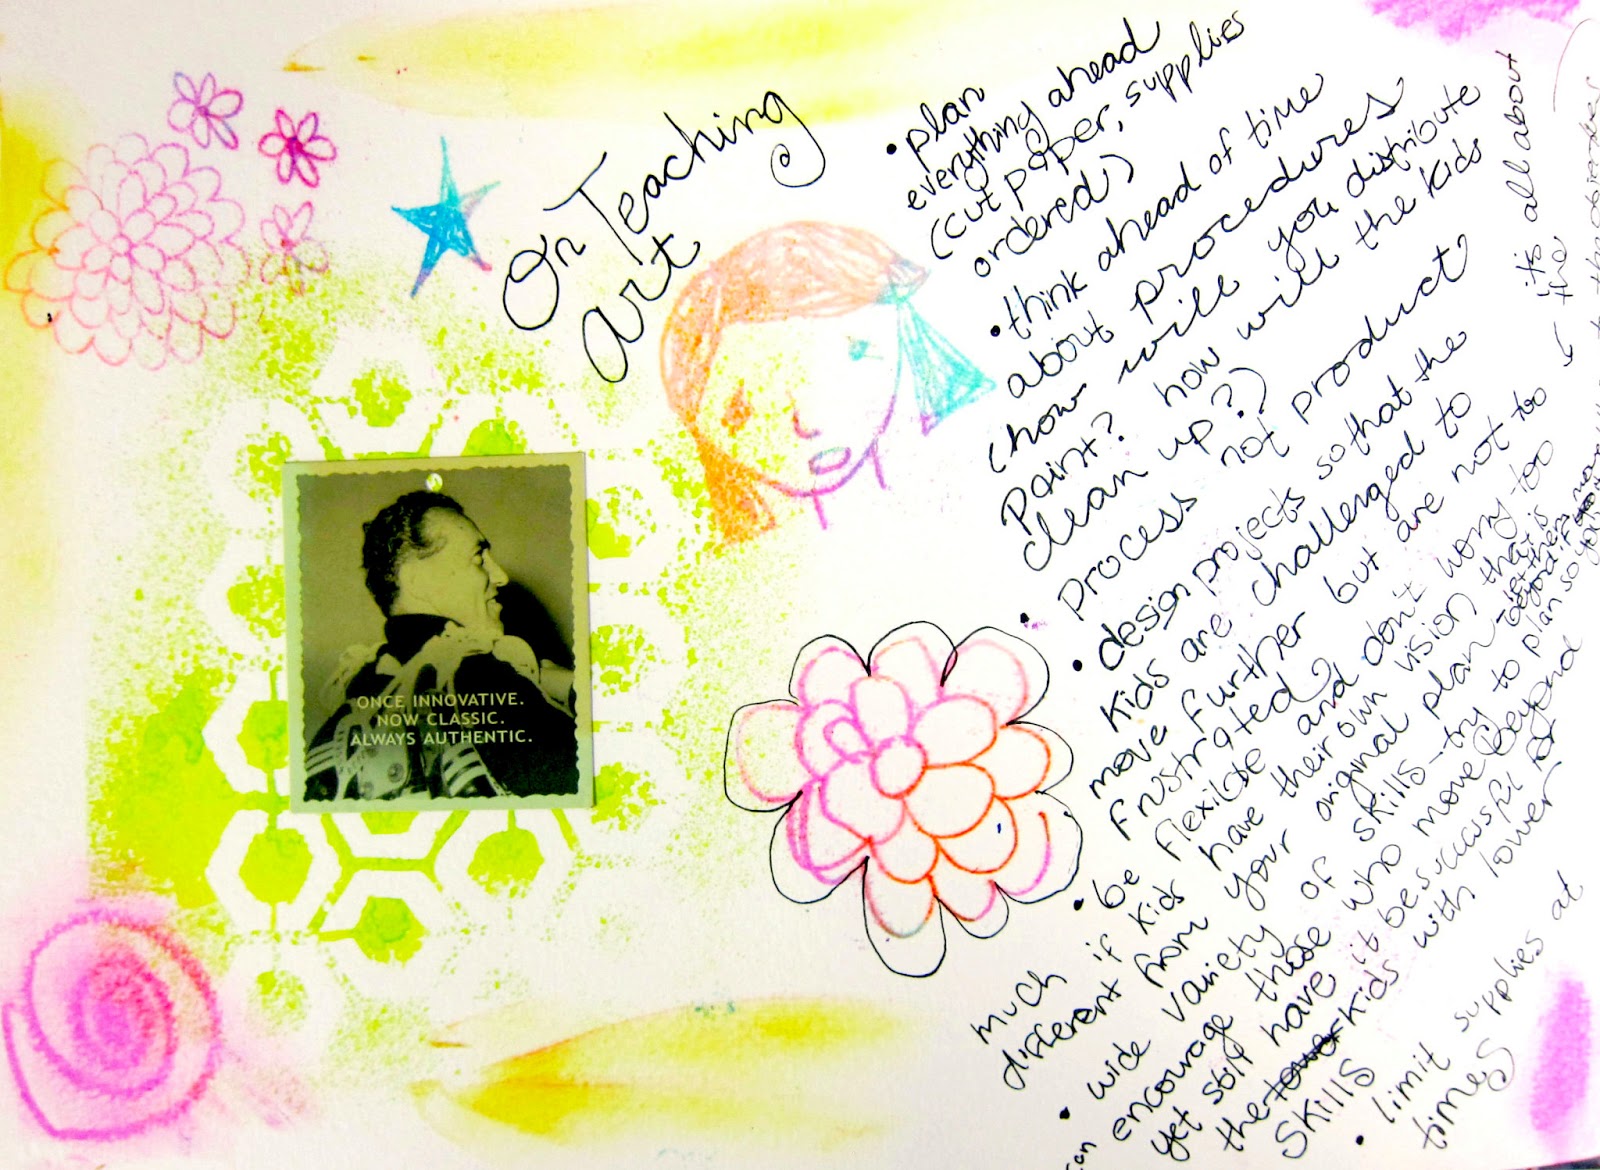 On Teaching
Art
ONCE INNOVATIVE.
NOW CLASSIC.
ALWAYS AUTHENTIC.
• plan
everything ahead
(cut paper, supplies
ordered)
• think ahead of time
about procedures
(how will you distribute
paint? how will the kids
clean up?)
• process not product
• design projects so that the
kids are challenged to
move further but are not too
frustrated
• be flexible and don't worry too
much if kids have their own vision that is
different from your original plan - let them
• wide variety of skills - try to plan so you
can encourage those who move beyond
yet still have it be successful for
the lower kids with lower
skills
• limit supplies at
times
it's all about
the